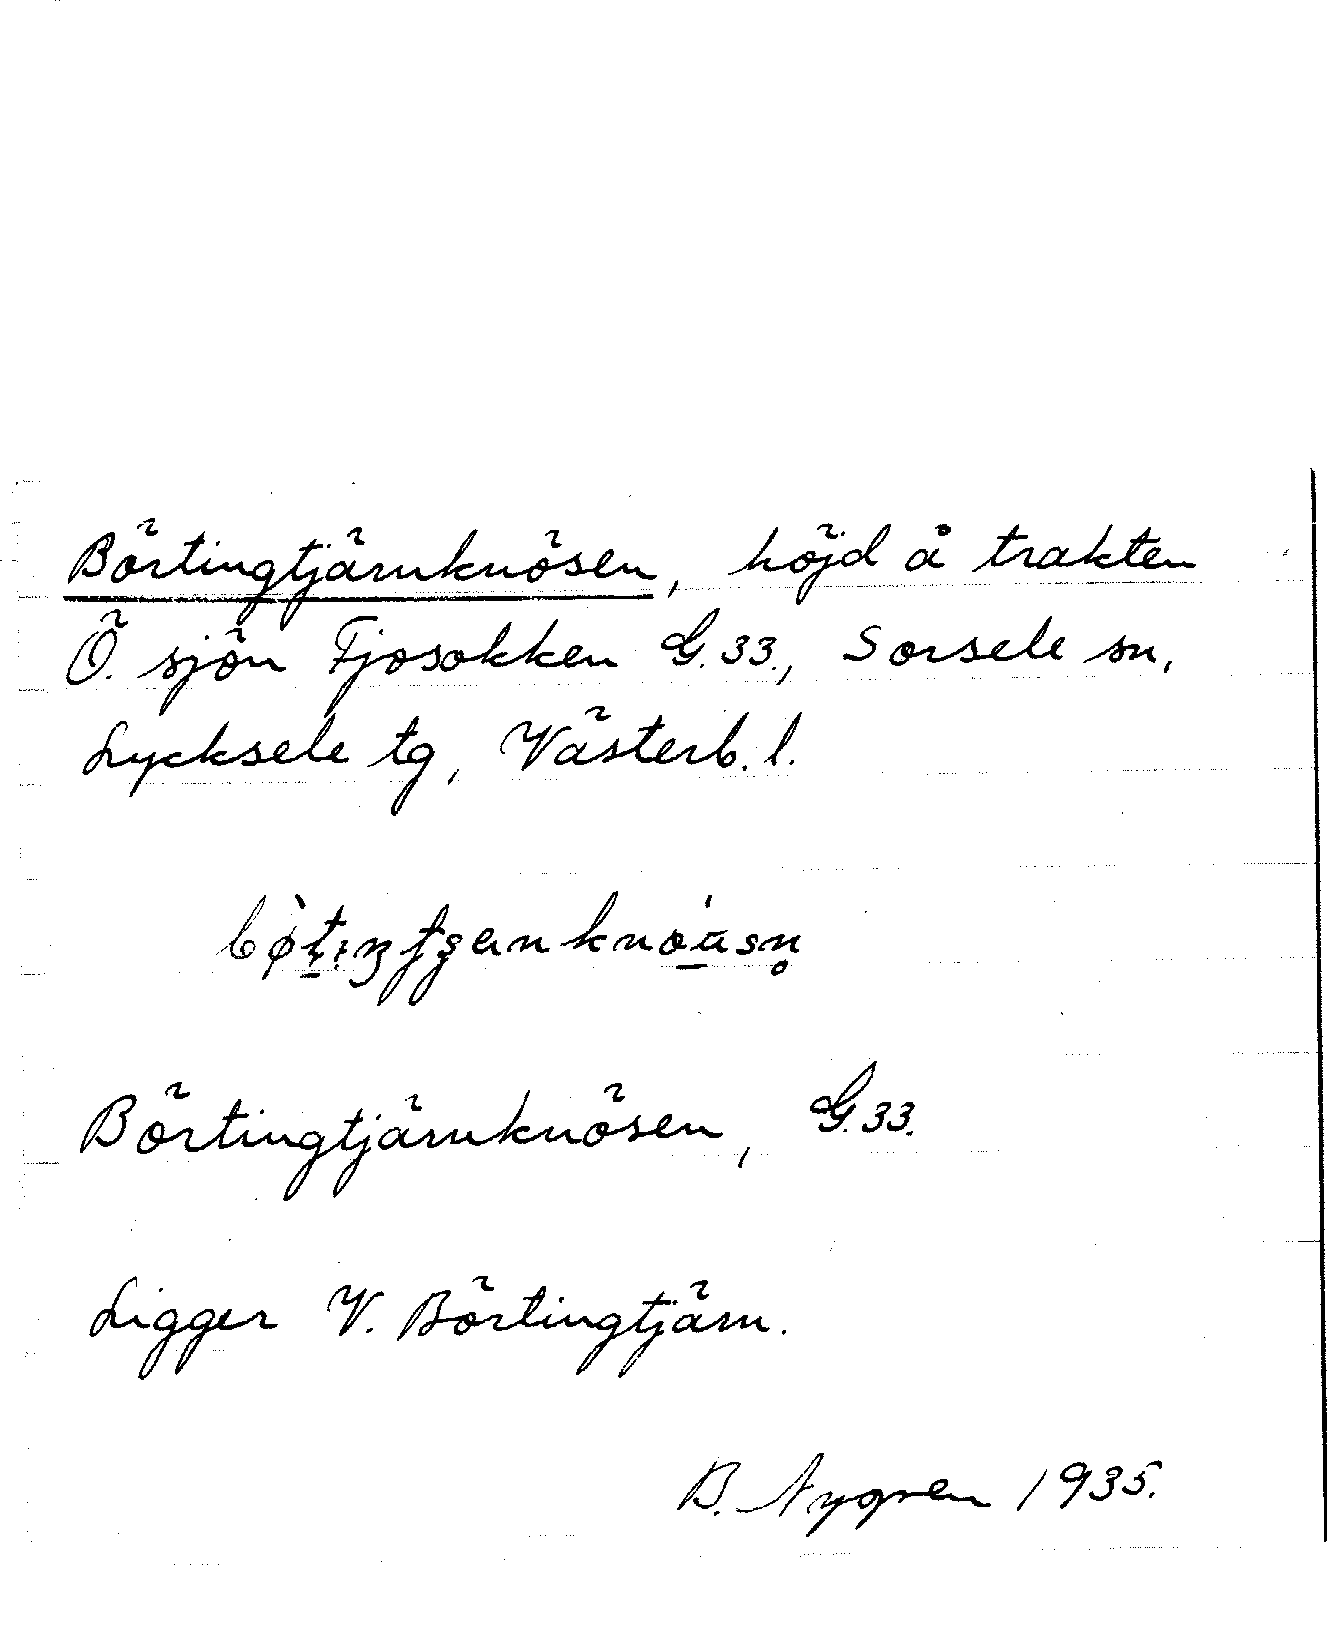 Börtingtjärnknösen, höjd å trakten
Ö. sjön Fjosokken G. 33., Sorsele sn,
Lycksele tg, Västerb. l.
Börtingtjärnknösen, G. 33.
Ligger V. Börtingtjärn.
B. Nygren 1935.